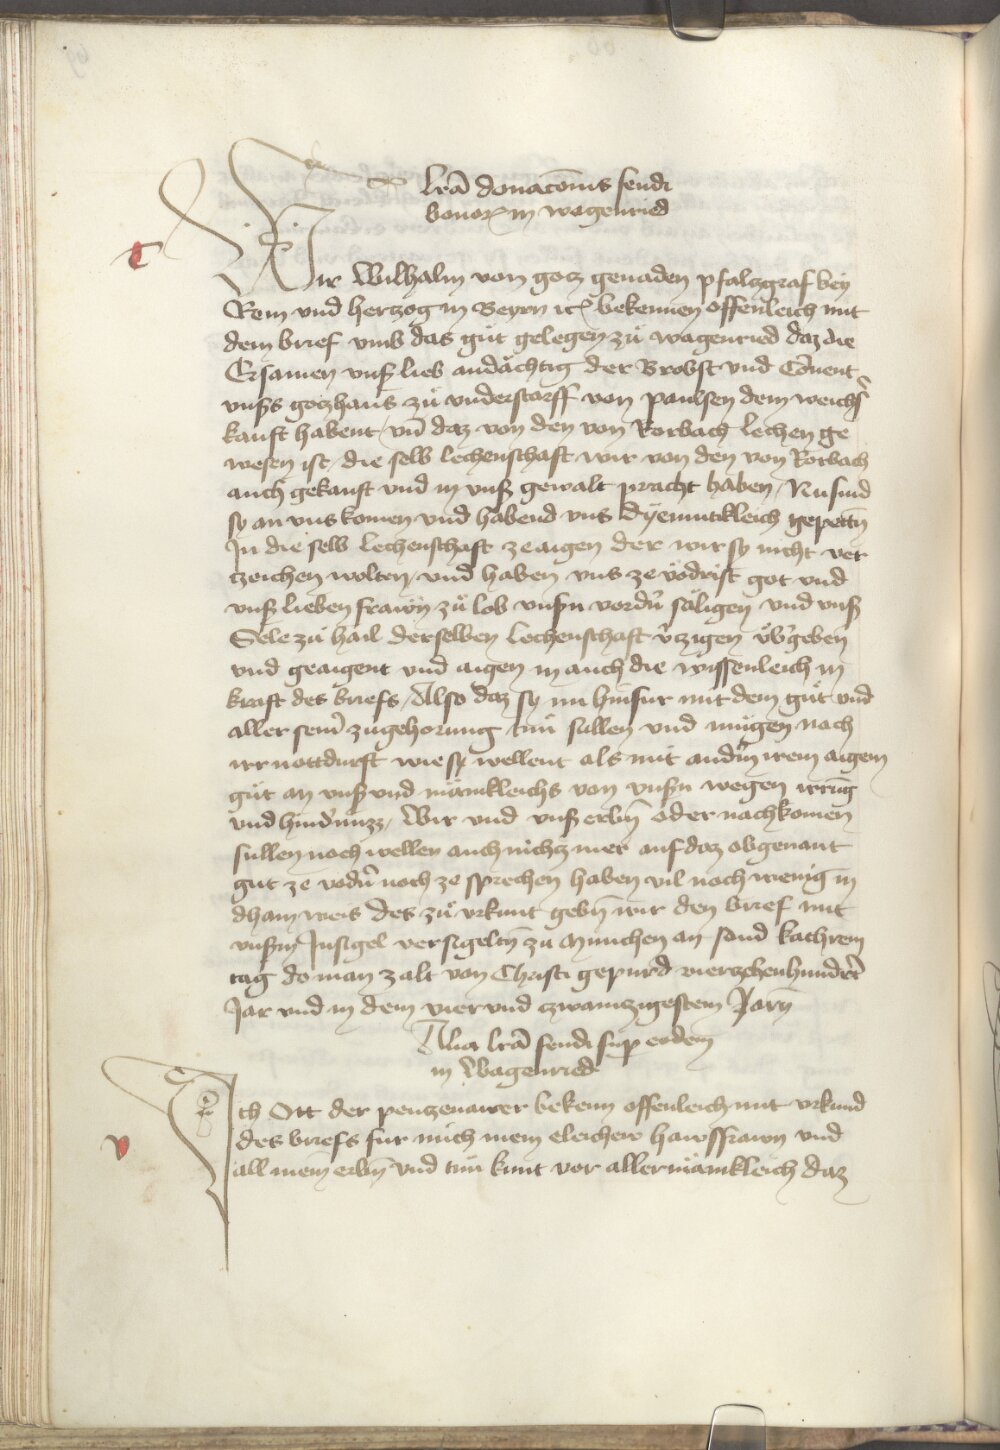 lrā donacōnis feudi
bonor in wagenried
t
Wir Wilhalm von gotz genaden pfalzgraf bey
Rein vnd hertzog in Beyrn rc bekennen offenleich mit
dem brief vmb das gůt gelegen zů wagenried daz die
Ersamen vnß lieb andächtig der Brobst vnd Cōuent
vnßs gotzhaus zů vnderstorff von paulsen dem weichs
kauft habent / vn̄ daz von den von Rorbach lechen ge
wesen ist / die selb lechenschaft wir von den von Rorbach
auch gekauft vnd in vnß gewalt pracht haben / Nu sind
sy an vns komen vnd habend vns dyemutikleich gepettn̄
In die selb lechenschaft ze aigen der wir sy nicht ver
tzeichen wolten / vnd haben vns ze vödrist got vnd
vnß lieben frawn̄ zů lob vnßn vordn̄ säligen vnd vnß
Sele zů hail derselben lechenschaft v̄zigen v̈bgeben
vnd geaigent vnd aigen in auch die wissenleich in
kraft des briefs / Also daz sy nu hinfur mit dem gůt vnd
aller sein̄ zugehorung tun sullen vnd mugen nach
irr nottdurft wie sy wellent als mit andn̄ irem aigem
gůt an vnß vnd mäinkleichs von vnßn wegen irrūg
vnd hindnuzz / Wir vnd vnß erbn̄ oder nachkomen
sullen noch wellen auch nichtz mer auf daz obgenant
gut ze vodn̄ noch ze sprechen haben vil noch wenig in
dhain weis des zů vrkunt gebn̄ wir den brief mit
vnßm Insigel versigeltn̄ zu Munichen an sand kathrein
tag do man zalt von Christi gepurd vierzehenhundrt
Jar vnd in dem vier vnd zwaintzigestem Jarn̄
Alia lrā feudi sup eodem
in Wagenried
v
Ich Ott der pentzenawer bekenn offenleich mit vrkund
des briefs fur mich mein eleichew hawsfrawn vnd
all mein̄ erbn̄ vnd tun kunt vor allermäinkleich daz